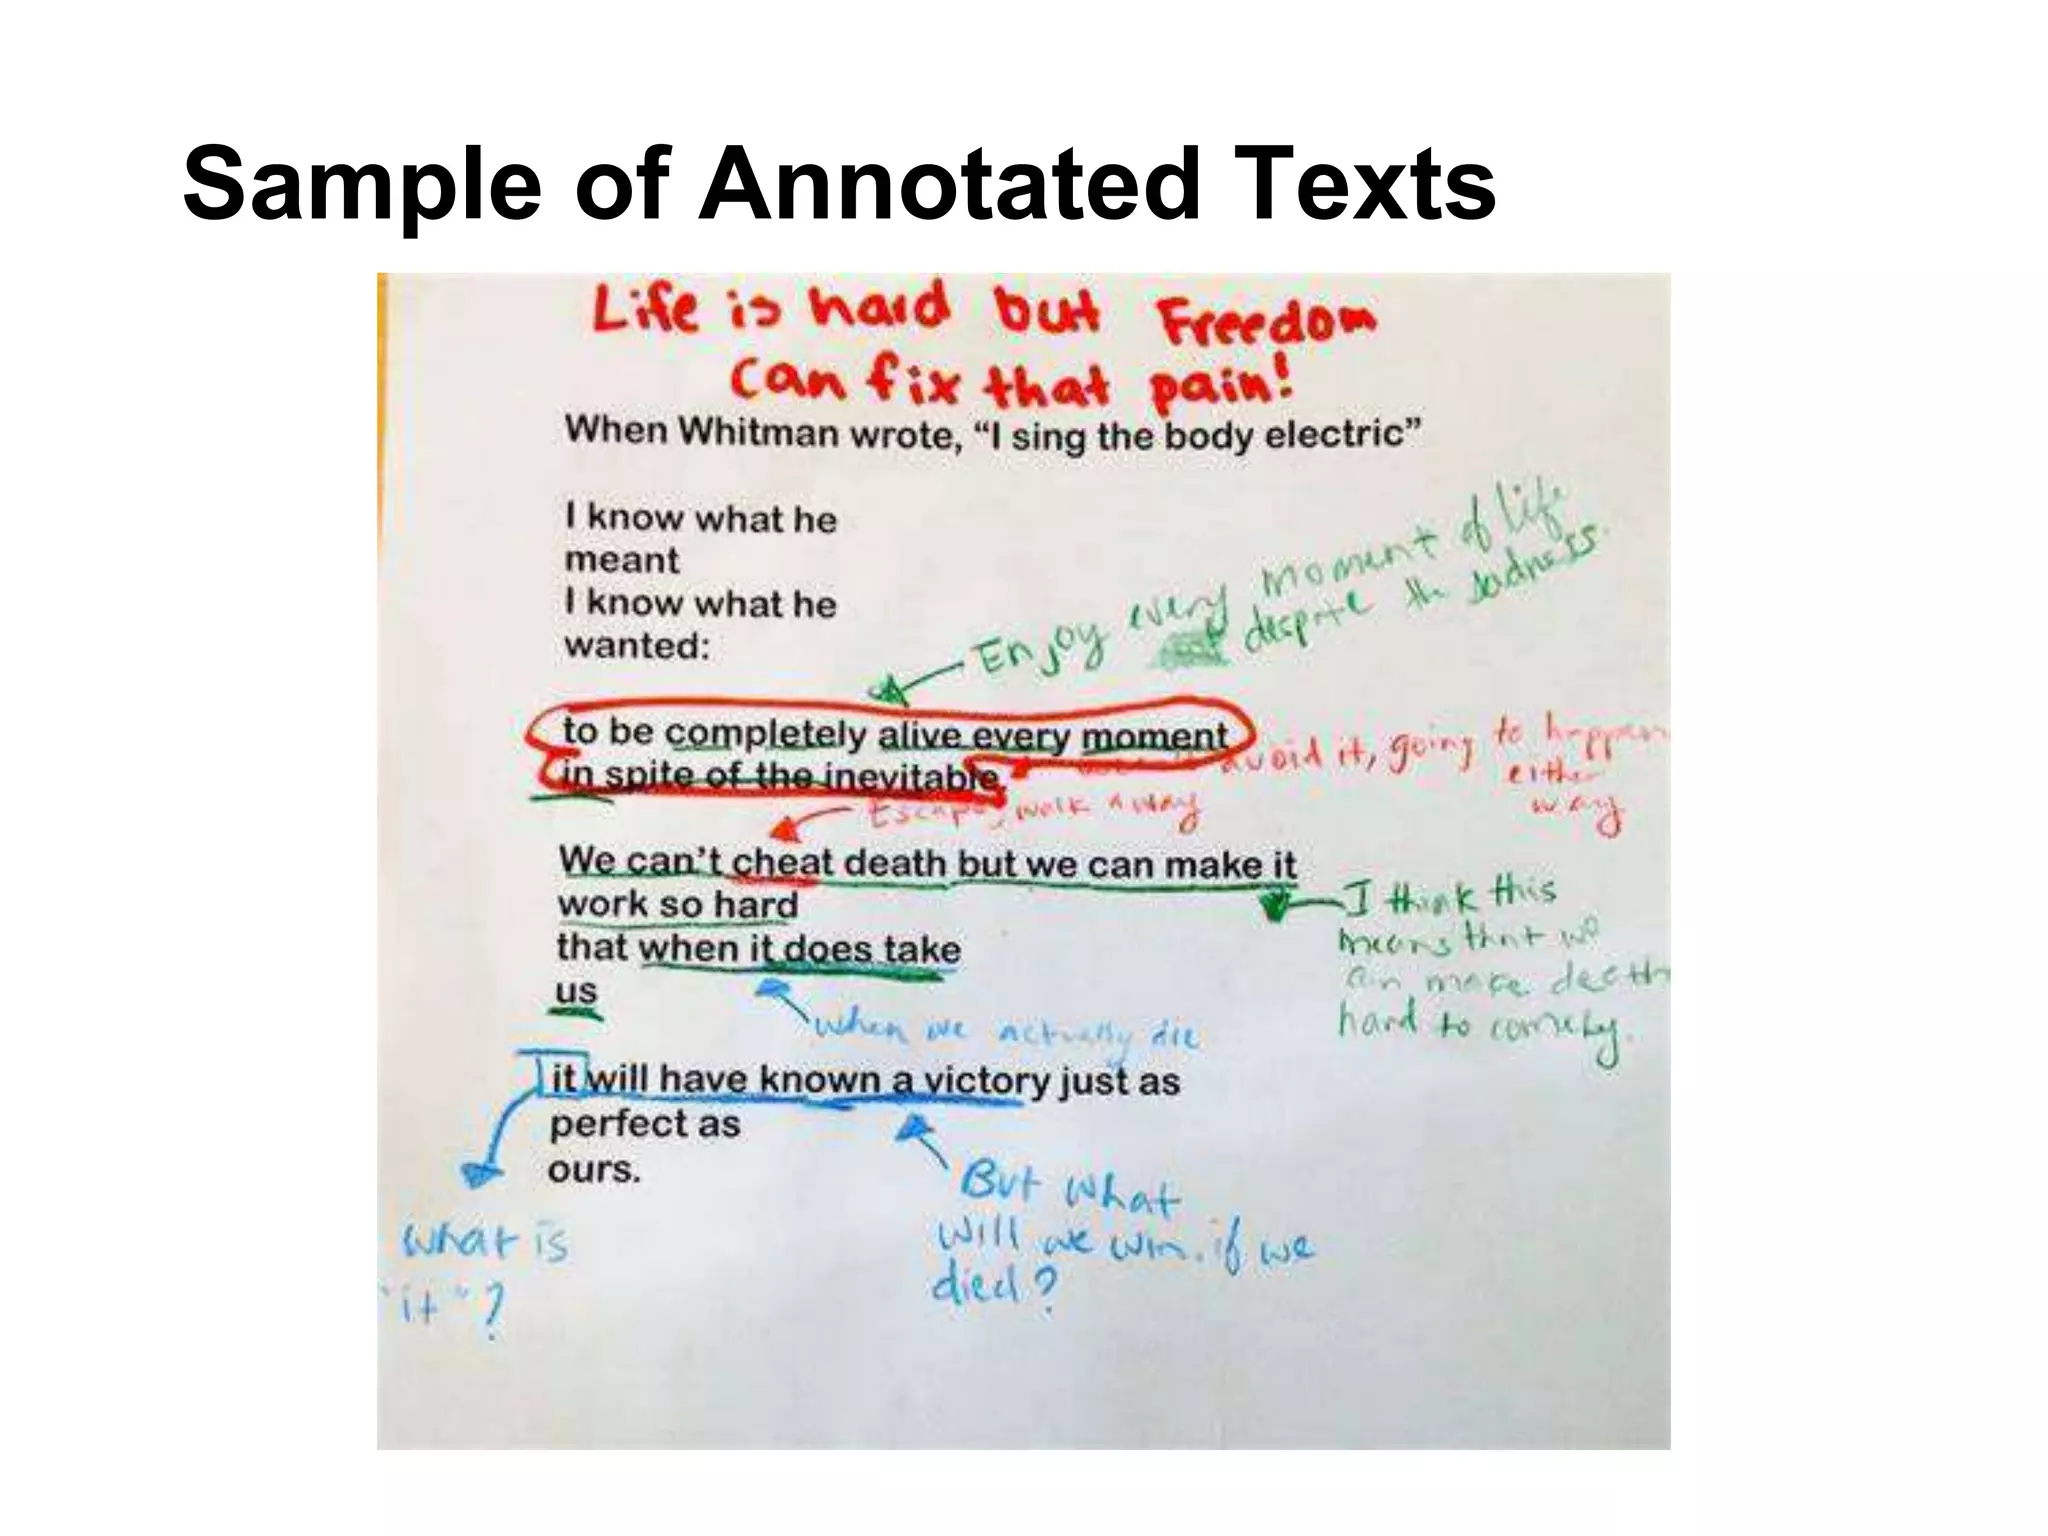 Sample of Annotated Texts
Life is hard but Freedom
can fix that pain!
When Whitman wrote, “I sing the body electric”
I know what he
meant
I know what he
wanted:
Enjoy every moment of life
despite the sadness.
to be completely alive every moment
in spite of the inevitable.
avoid it, going to happen
either
way
Escape, walk away
We can’t cheat death but we can make it
work so hard
that when it does take
us
I think this
means that we
can make death
hard to
when we actually die
it will have known a victory just as
perfect as
ours.
what is
"it"?
But what
will we win. if we
died?